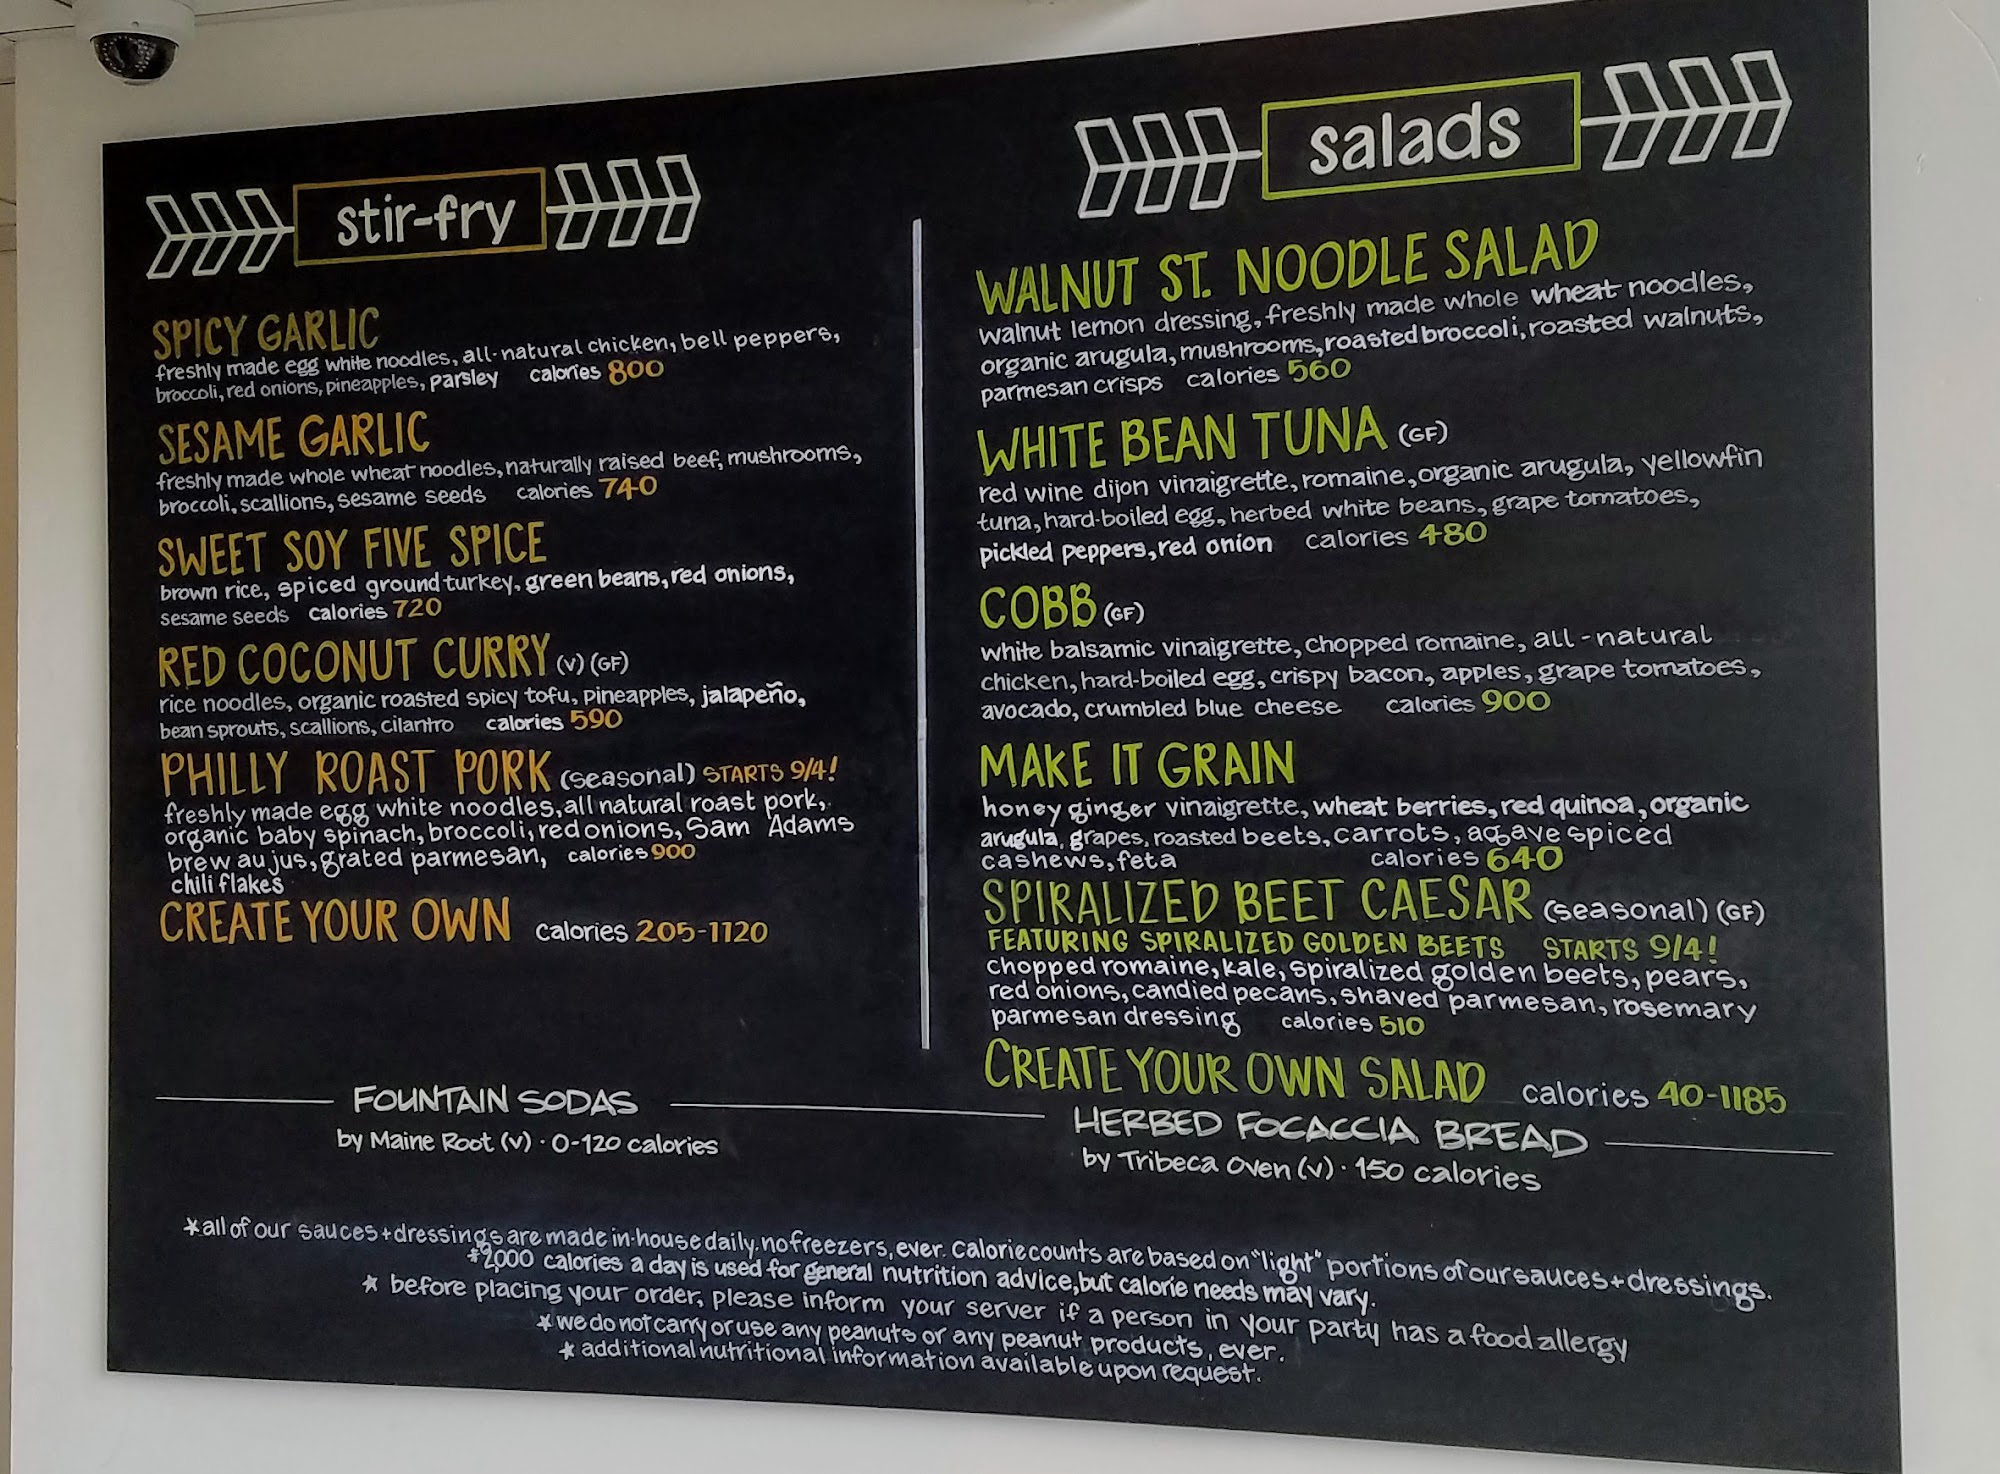 stir-fry
SPICY GARLIC
freshly made egg white noodles, all-natural chicken, bell peppers,
broccoli, red onions, pineapples, parsley calories 800
SESAME GARLIC
freshly made whole wheat noodles, naturally raised beef, mushrooms,
broccoli, scallions, sesame seeds calories 740
SWEET SOY FIVE SPICE
brown rice, spiced ground turkey, green beans, red onions,
sesame seeds calories 720
RED COCONUT CURRY (V) (GF)
rice noodles, organic roasted spicy tofu, pineapples, jalapeño,
bean sprouts, scallions, cilantro calories 590
PHILLY ROAST PORK (seasonal) STARTS 9/4!
freshly made egg white noodles, all natural roast pork,
organic baby spinach, broccoli, red onions, Sam Adams
brew au jus, grated parmesan, calories 900
chili flakes
CREATE YOUR OWN calories 205-1120
salads
WALNUT ST. NOODLE SALAD
walnut lemon dressing, freshly made whole wheat noodles,
organic arugula, mushrooms, roasted broccoli, roasted walnuts,
parmesan crisps calories 560
WHITE BEAN TUNA (GF)
red wine dijon vinaigrette, romaine, organic arugula, yellowfin
tuna, hard-boiled egg, herbed white beans, grape tomatoes,
pickled peppers, red onion calories 480
COBB (GF)
white balsamic vinaigrette, chopped romaine, all-natural
chicken, hard-boiled egg, crispy bacon, apples, grape tomatoes,
avocado, crumbled blue cheese calories 900
MAKE IT GRAIN
honey ginger vinaigrette, wheat berries, red quinoa, organic
arugula, grapes, roasted beets, carrots, agave spiced
cashews, feta calories 640
SPIRALIZED BEET CAESAR (seasonal) (GF)
FEATURING SPIRALIZED GOLDEN BEETS STARTS 9/4!
chopped romaine, kale, spiralized golden beets, pears,
red onions, candied pecans, shaved parmesan, rosemary
parmesan dressing calories 510
CREATE YOUR OWN SALAD calories 40-1185
FOUNTAIN SODAS
by Maine Root (v) · 0-120 calories
HERBED FOCACCIA BREAD
by Tribeca Oven (v) · 150 calories
*all of our sauces + dressings are made in-house daily, no freezers, ever. Calorie counts are based on "light" portions of our sauces + dressings.
*2,000 calories a day is used for general nutrition advice, but calorie needs may vary.
* before placing your order, please inform your server if a person in your party has a food allergy
*we do not carry or use any peanuts or any peanut products, ever.
* additional nutritional information available upon request.